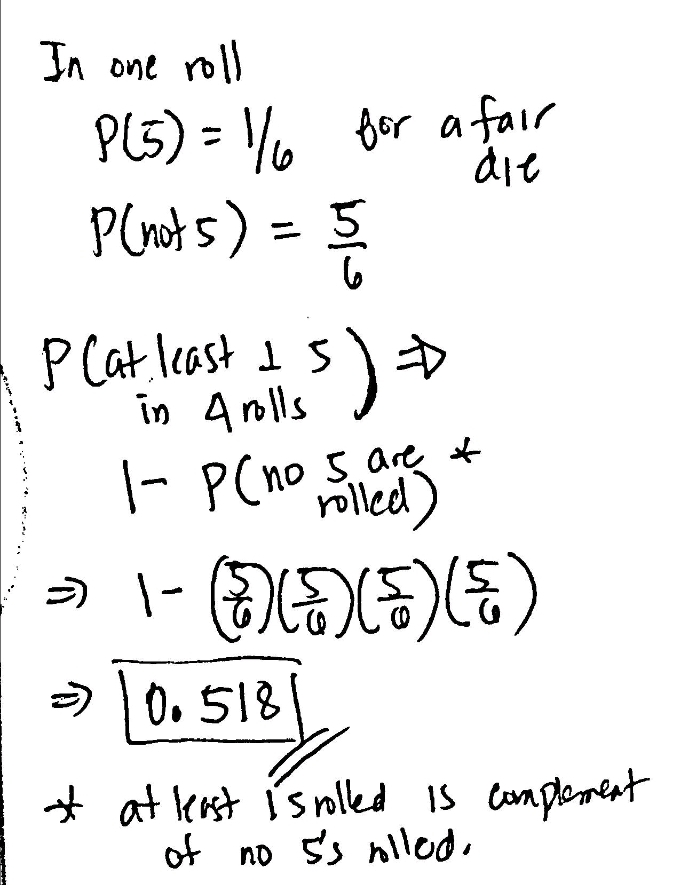 In one roll
P(5) = 1/6 for a fair
die
P(not 5) = 5/6
P(at least 1 5
in 4 rolls) ⇒
1 - P(no 5 are *
rolled)
⇒ 1 - (5/6)(5/6)(5/6)(5/6)
⇒ 0.518
* at least 1 5 rolled is complement
of no 5's rolled.